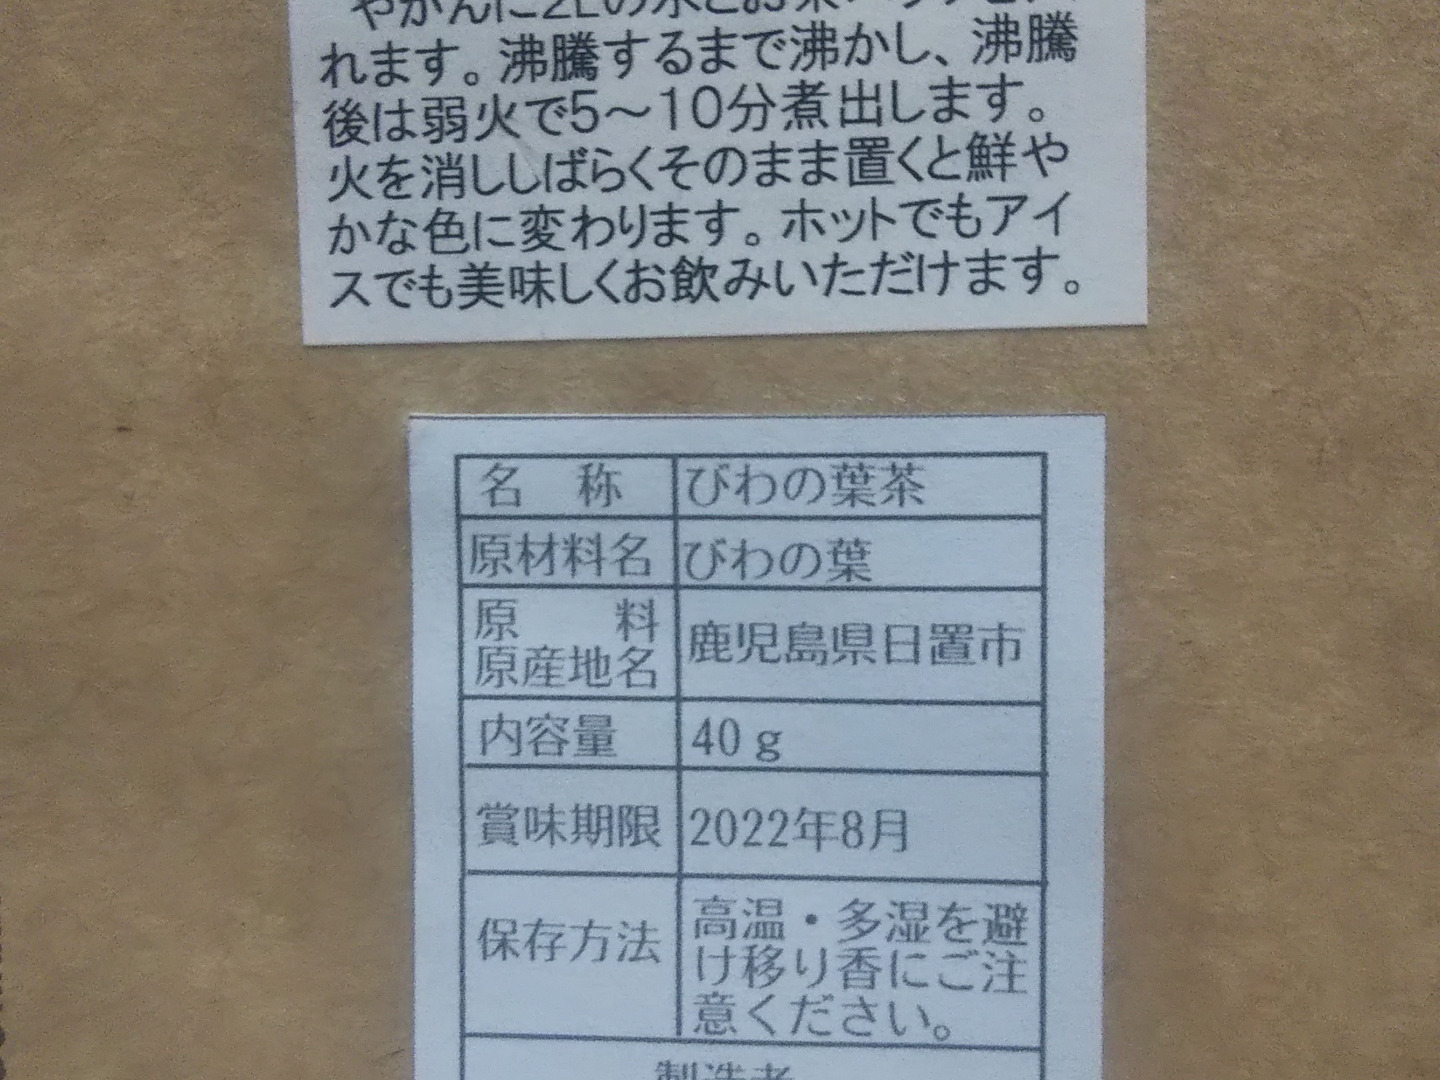 やかんに2Lの水とお茶パックを入
れます。沸騰するまで沸かし、沸騰
後は弱火で5～10分煮出します。
火を消ししばらくそのまま置くと鮮や
かな色に変わります。ホットでもアイ
スでも美味しくお飲みいただけます。
名 称 びわの葉茶
原材料名 びわの葉
原 料
原産地名 鹿児島県日置市
内容量 40g
賞味期限 2022年8月
保存方法 高温・多湿を避
け移り香にご注
意ください。
製造者